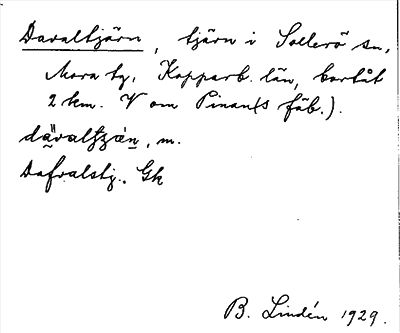 Davaltjärn, tjärn i Sollerö sn,
Mora tg, Kopparb. län, bortåt
2 km. V om Pinan(s fäb.).
dävaltjän, m.
Dafvalstj. Gk
B. Lindén 1929.